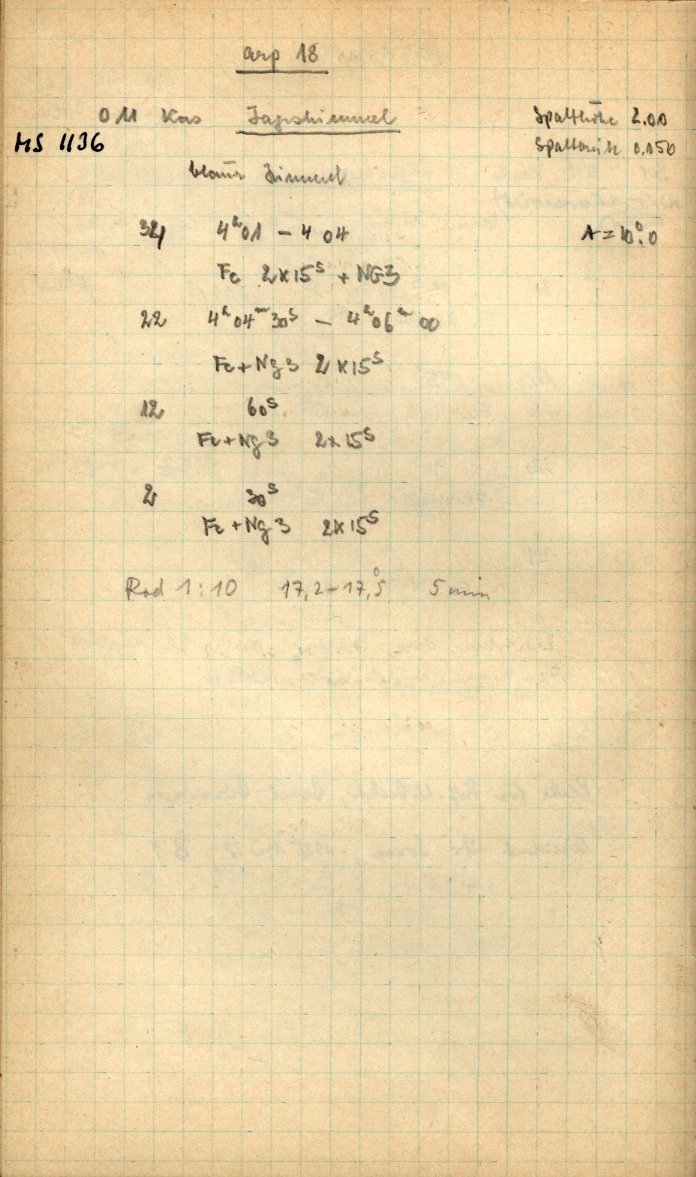 arp 18
O M Kas Tageshimmel Spalthöhe 2.00
MS 1136 Spaltbreite 0.150
blauer Himmel
32 4ʰ01 – 4 04 A = 10°.0
Fe 2×15ˢ + NG3
22 4ʰ04ᵐ30ˢ – 4ʰ06ᵐ00
Fe+Ng3 2×15ˢ
12 60ˢ
Fe+Ng3 2×15ˢ
2 30ˢ
Fe+Ng3 2×15ˢ
Rod 1:10 17,2–17,5° 5 min